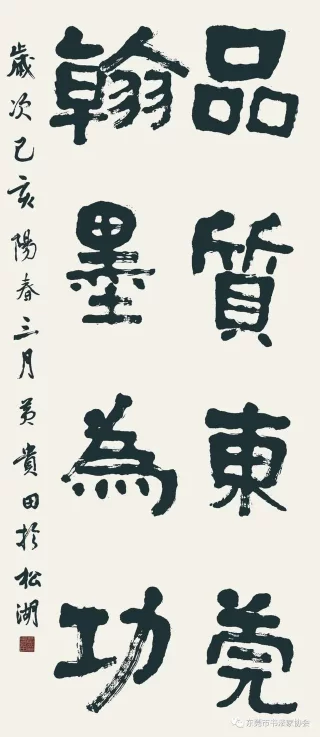 品質東莞
翰墨為功
歲次己亥陽春三月黄貴田於松湖
东莞市书法家协会